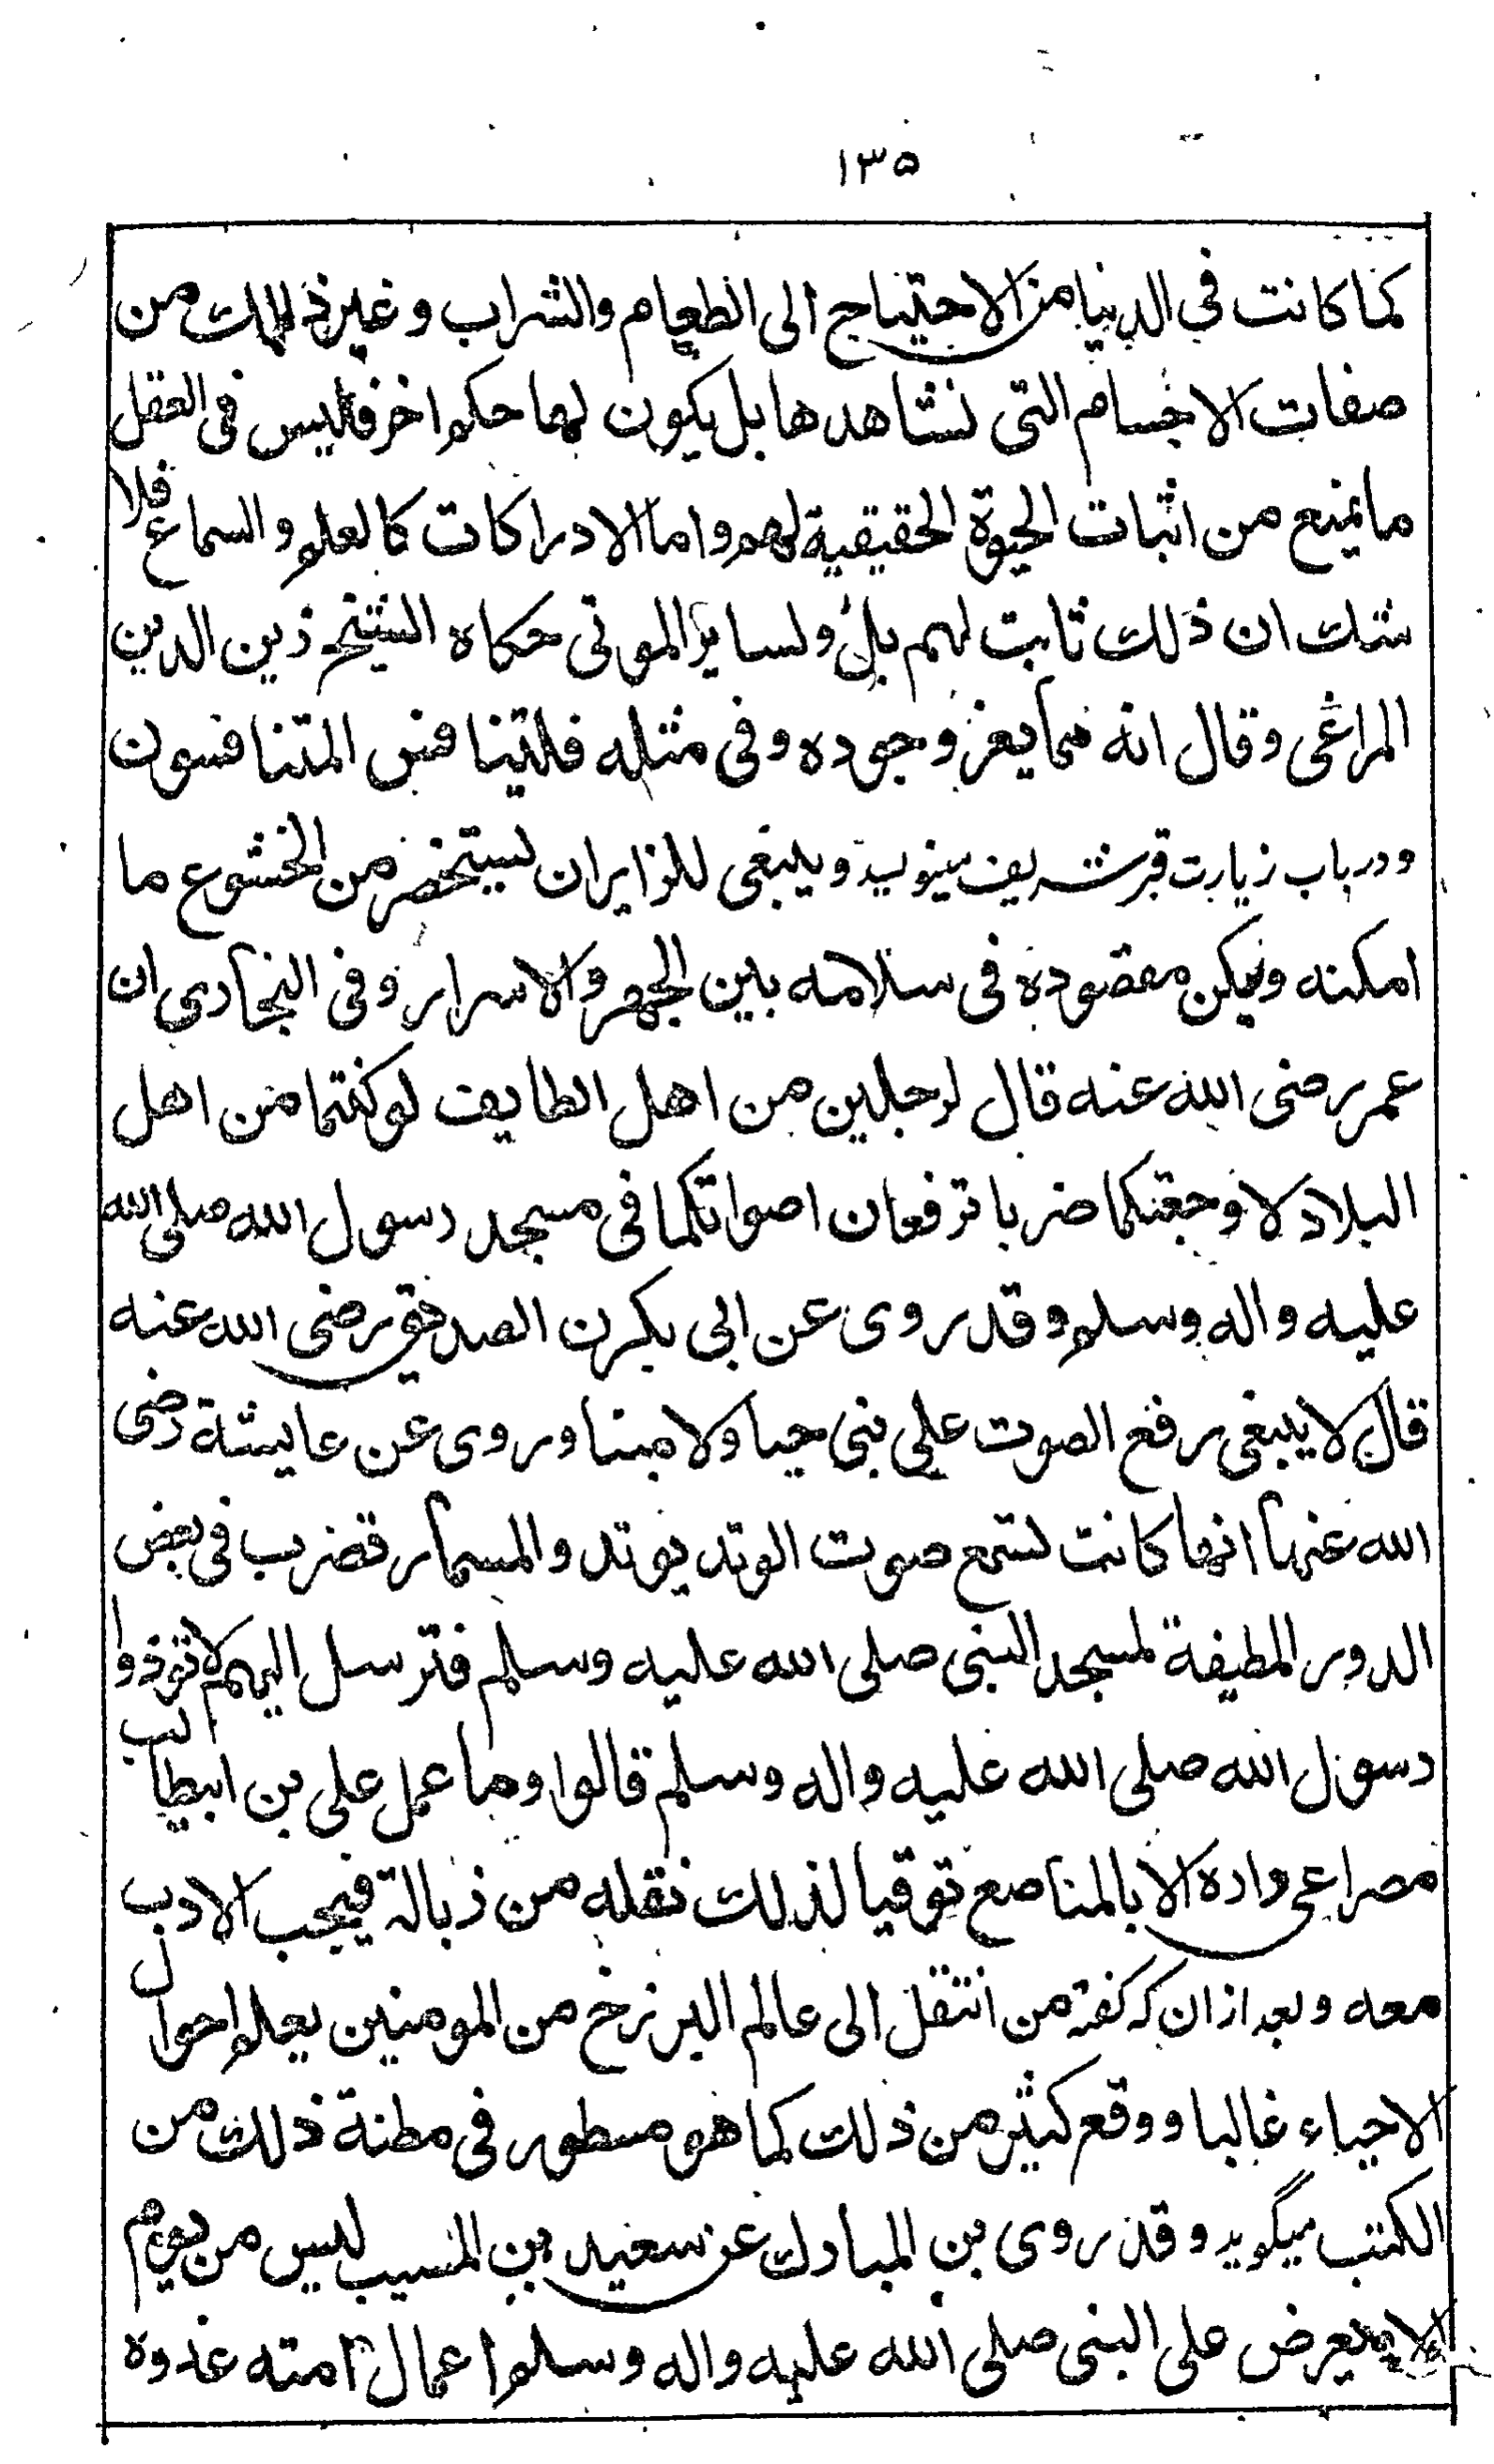 ١٣٥
كما كانت فى الدنيا من الاحتياج الى الطعام والشراب وغير ذلك من
صفات الاجسام التى نشاهدها بل يكون لها حكم اخر فليس فى العقل
ما يمنع من اثبات الحيوة الحقيقية لهم واما الادراكات كالعلم والسماع فلا
شك ان ذلك ثابت لهم بل ولساير الموتى حكاه الشيخ زين الدين
المراغى وقال انه مما يعز وجوده وفى مثله فليتنافس المتنافسون
ودر باب زيارت قبر شريف مينويسد وينبغى للزايران يستحضر من الخشوع ما
امكنه وليكن مقصوده فى سلامه بين الجهر والاسرار وفى البخارى ان
عمر رضى الله عنه قال لرجلين من اهل الطايف لو كنتما من اهل
البلاد لاوجعتكما ضربا ترفعان اصواتكما فى مسجد رسول الله صلى الله
عليه واله وسلم وقد روى عن ابى بكرن الصديق رضى الله عنه
قال لا ينبغى رفع الصوت على نبى حيا ولا ميتا وروى عن عايشة رضى
الله عنها انها كانت تسمع صوت الوتد يوتد والمسمار قضرب فى بعض
الدور المطيفة لمسجد النبى صلى الله عليه وسلم فترسل اليهم لا توذوا
رسول الله صلى الله عليه واله وسلم قالوا وما عمل على بن ابيطالب
مصراعى داره الا بالمناصع توقيا لذلك نقله من زبالة فيجب الادب
معه وبعد ازان كه كفته من انتقل الى عالم البرزخ من المومنين يعلم احوال
الاحياء غالبا ووقع كثير من ذلك كما هو مسطور فى مظنة ذلك من
الكتب ميگويد وقد روى بن المبارك عن سعيد بن المسيب ليس من يوم
الا ويعرض على النبى صلى الله عليه واله وسلم اعمال امته غدوة